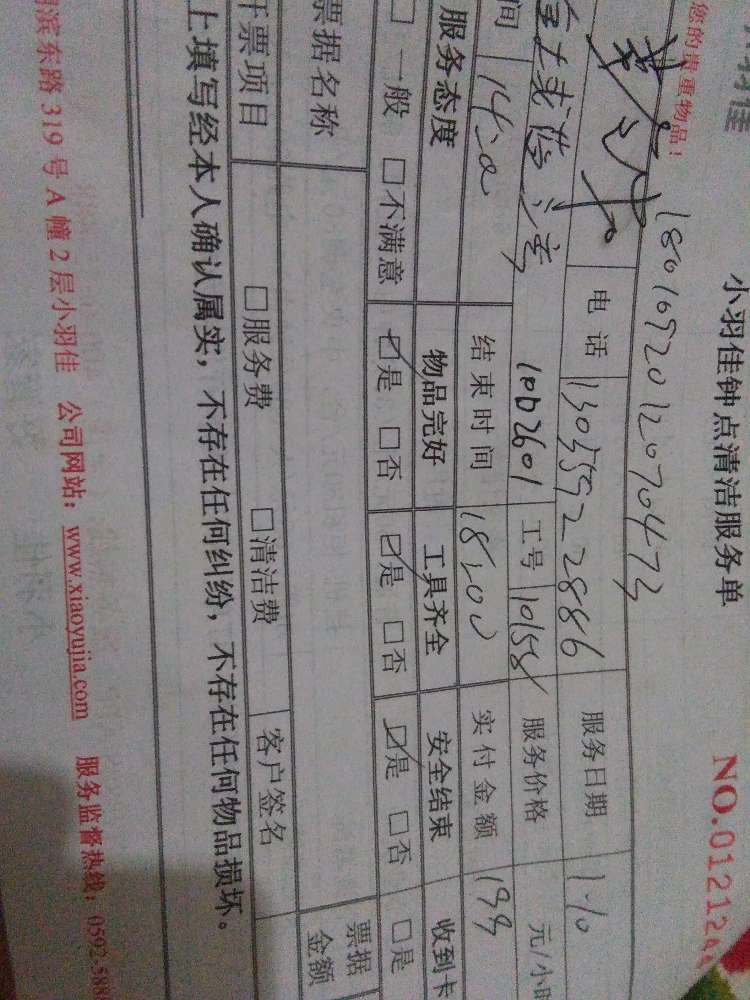 小羽佳钟点清洁服务单 NO.01212
您的贵重物品!
18016920120470473
电话 13055922886 服务日期 1.10
1002601 工号 10158 服务价格 元/小时
间 14:00 结束时间 18:00 实付金额 199
服务态度 物品完好 工具齐全 安全结束 收到卡
□一般 □不满意 ☑是 □否 ☑是 □否 ☑是 □否 □是
票据名称 票据金额
开票项目 □服务费 □清洁费 客户签名
上填写经本人确认属实，不存在任何纠纷，不存在任何物品损坏。
滨东路319号A幢2层小羽佳 公司网站：www.xiaoyujia.com 服务监督热线：0592-588